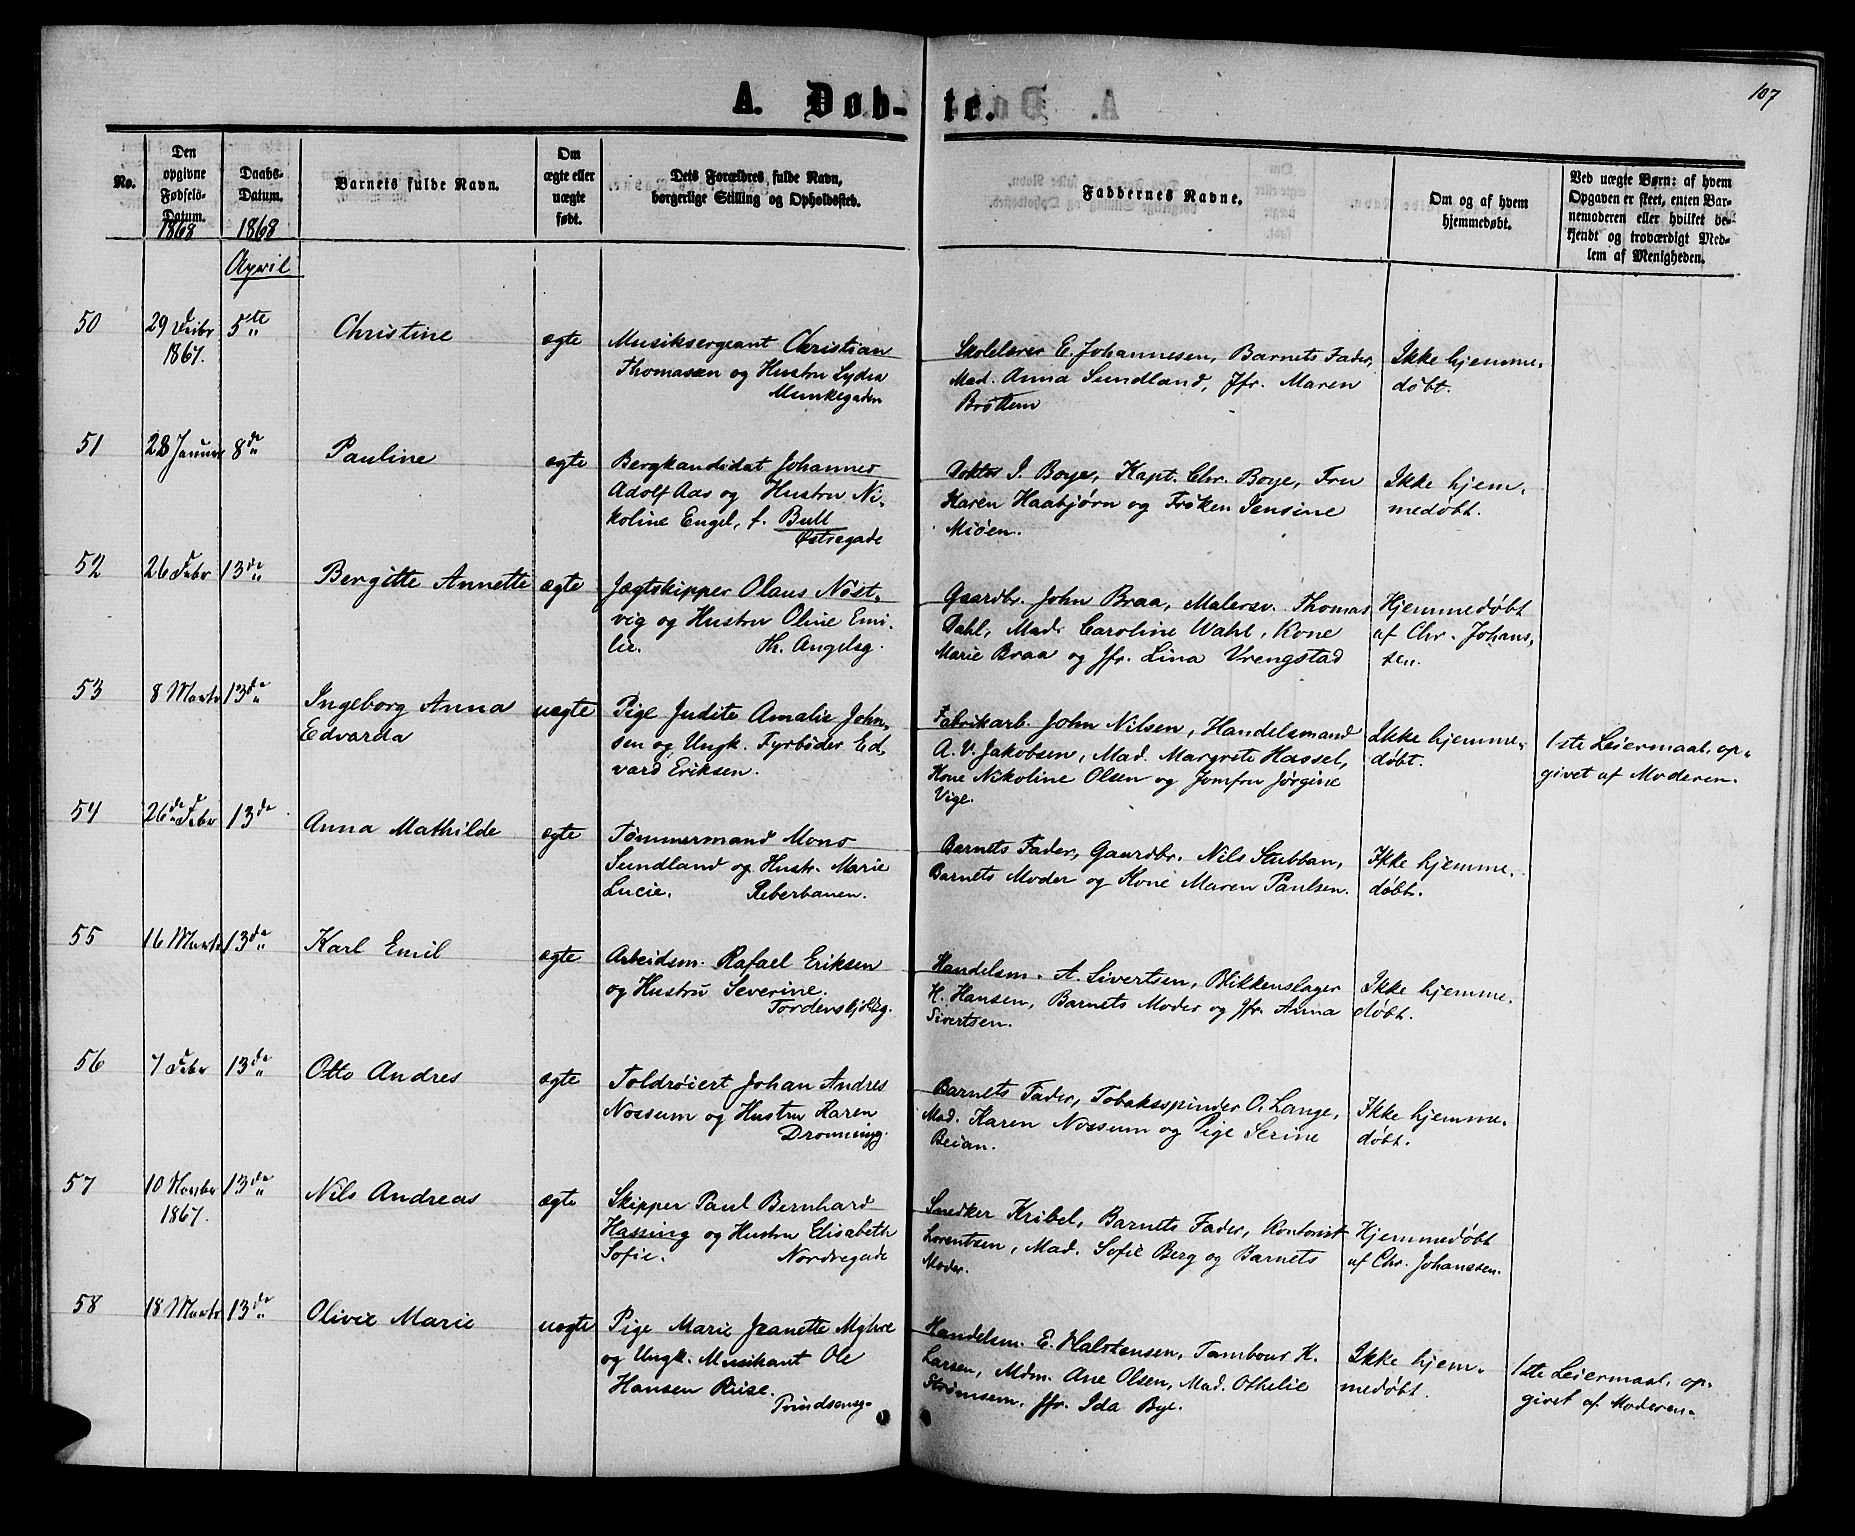 107
A. Døb-te.
No.
Den opgivne Fødsels-Datum.
Daabs-Datum.
Barnets fulde Navn.
Om ægte eller uægte født.
Dets Forældres fulde Navn, borgerlige Stilling og Opholdssted.
Faddernes Navne.
Om og af hvem hjemmedøbt.
Ved uægte Børn: af hvem Opgaven er skeet, enten Barnemoderen eller hvilket bekjendt og troværdigt Medlem af Menigheden.
1868 1868
April
50 29 Febr 5te Christine ægte Musiksergeant Christian Skolelærer E. Johannesen, Barnets Fader, Ikke hjemme-
1867. Thomasen og Hustru Lydia Mad. Anna Sundland, Jfr. Maren døbt.
Munkegaden Brøttem
51 28 Januar 8de Pauline ægte Bergkandidat Johannes Doktor J. Boye, Kapt. Chr. Boye, Fru Ikke hjem-
Adolf Aas og Hustru Ni- Karen Haabjørn og Frøken Jensine medøbt.
koline Engel, f. Bull Miøen.
Østregade
52 26 Febr 13de Bergitte Annette ægte Jægtskipper Olaus Nöst- Gaardbr. John Braa, Malersv. Thomas Hjemmedøbt
vig og Hustru Oline Emi- Dahl, Mad. Caroline Wahl, Kone af Chr. Johans-
lie. Th. Angelsg. Marie Braa og Jfr. Lina Vrengstad sen.
53 8 Marts 13de Ingeborg Anna uægte Pige Judite Amalie John- Fabrikarb. John Nilsen, Handelsmand Ikke hjemme- 1ste Leiermaal, op-
Edvarda sen og Ungk. Fyrbøder Ed- A. V. Jakobsen, Mad. Margrete Hassel, døbt. givet af Moderen.
vard Eriksen. Kone Nikoline Olsen og Jomfru Jørgine
Vige.
54 26de Febr 13de Anna Mathilde ægte Tømmermand Mons Barnets Fader, Gaardbr. Nils Stubban, Ikke hjemme-
Sundland og Hustr. Marie Barnets Moder og Kone Maren Paulsen. døbt.
Lucie. Reberbanen.
55 16 Marts 13de Karl Emil ægte Arbeidsm. Rafael Eriksen Handelsm. A. Sivertsen, Blikkenslager Ikke hjemme-
og Hustru Severine. H. Hansen, Barnets Moder og Jfr. Anna døbt.
Tordenskjoldg. Sivertsen.
56 7 Febr 13de Otto Andres ægte Toldrøiert Johan Andres Barnets Fader, Tobaksspinder O. Lange, Ikke hjemme-
Nossum og Hustru Karen Mad. Karen Nossum og Pige Serine døbt.
Dronningg. Beian.
57 10 Novbr 13de Nils Andreas ægte Skipper Paul Bernhard Snedker Kribel, Barnets Fader, Kontorist Hjemmedøbt
1867. Hassing og Hustru Elisabeth Lorentsen, Mad. Sofie Berg og Barnets af Chr. Johanssen.
Sofie. Nordregade Moder.
58 18 Marts 13de Olivie Marie uægte Pige Marie Jeanette Myhre Handelsm. E. Halstensen, Tambour K. Ikke hjem- 1ste Leiermaal, op-
og Ungk. Musikant Ole Larsen, Mdm. Ane Olsen, Mad. Othelie medøbt. givet af Moderen.
Hansen Riise. Strømsem. Jfr. Ida Bye.